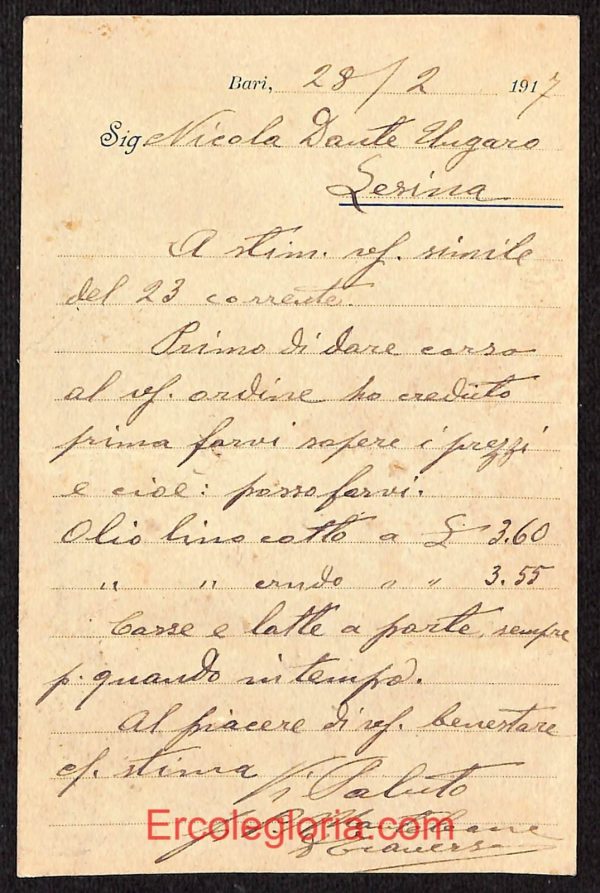 Bari, 28/2 1917
Sig Nicola Dante Ungaro
Lesina
A stim. vs. simile
del 23 corrente.
Primo di dare corso
al vs. ordine ho creduto
prima farvi sapere i prezzi
e cioè: posso farvi.
Olio lino cotto a £ 3.60
" " crudo " " 3.55
Casse e latte a parte, sempre
p. quando in tempo.
Al piacere di vs. benestare
cf. stima Vi Saluto
Ercolegloria.com